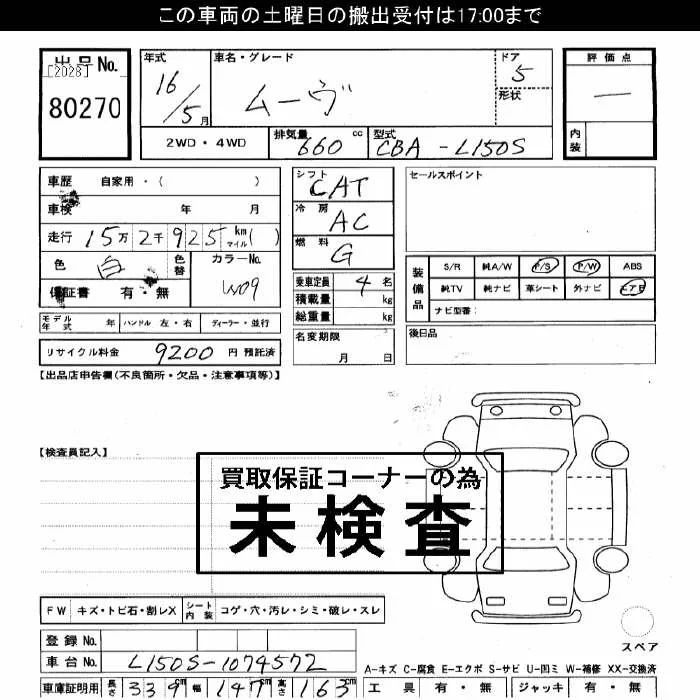 この車両の土曜日の搬出受付は17:00まで
出品No.
[2028]
80270
年式
16/5月
車名・グレード
ムーヴ
ドア
5
形状
評価点
—
内装
2WD・4WD
排気量
660 cc
型式
CBA-L150S
車歴 自家用・( )
車検 年 月
走行 15万2千925 km マイル( )
色 白 色替
カラーNo.
W09
保証書 有・無
モデル年式 年 ハンドル 左・右 ディーラー・並行
リサイクル料金 9200 円 預託済
シフト
CAT
冷房
AC
燃料
G
乗車定員 4 名
積載量 kg
総重量 kg
名変期限
月 日
セールスポイント
装備品
S/R 純A/W P/S P/W ABS
純TV 純ナビ 革シート 外ナビ エアB
ナビ型番:
後日品
【出品店申告欄(不良箇所・欠品・注意事項等)】
【検査員記入】
買取保証コーナーの為
未検査
FW キズ・トビ石・割レX シート内装 コゲ・穴・汚レ・シミ・破レ・スレ
登録No.
車台No. L150S-1074572
車庫証明用 長さ 339cm 幅 147cm 高さ 163cm
スペア
A-キズ C-腐食 E-エクボ S-サビ U-凹ミ W-補修 XX-交換済
工具 有・無 ジャッキ 有・無